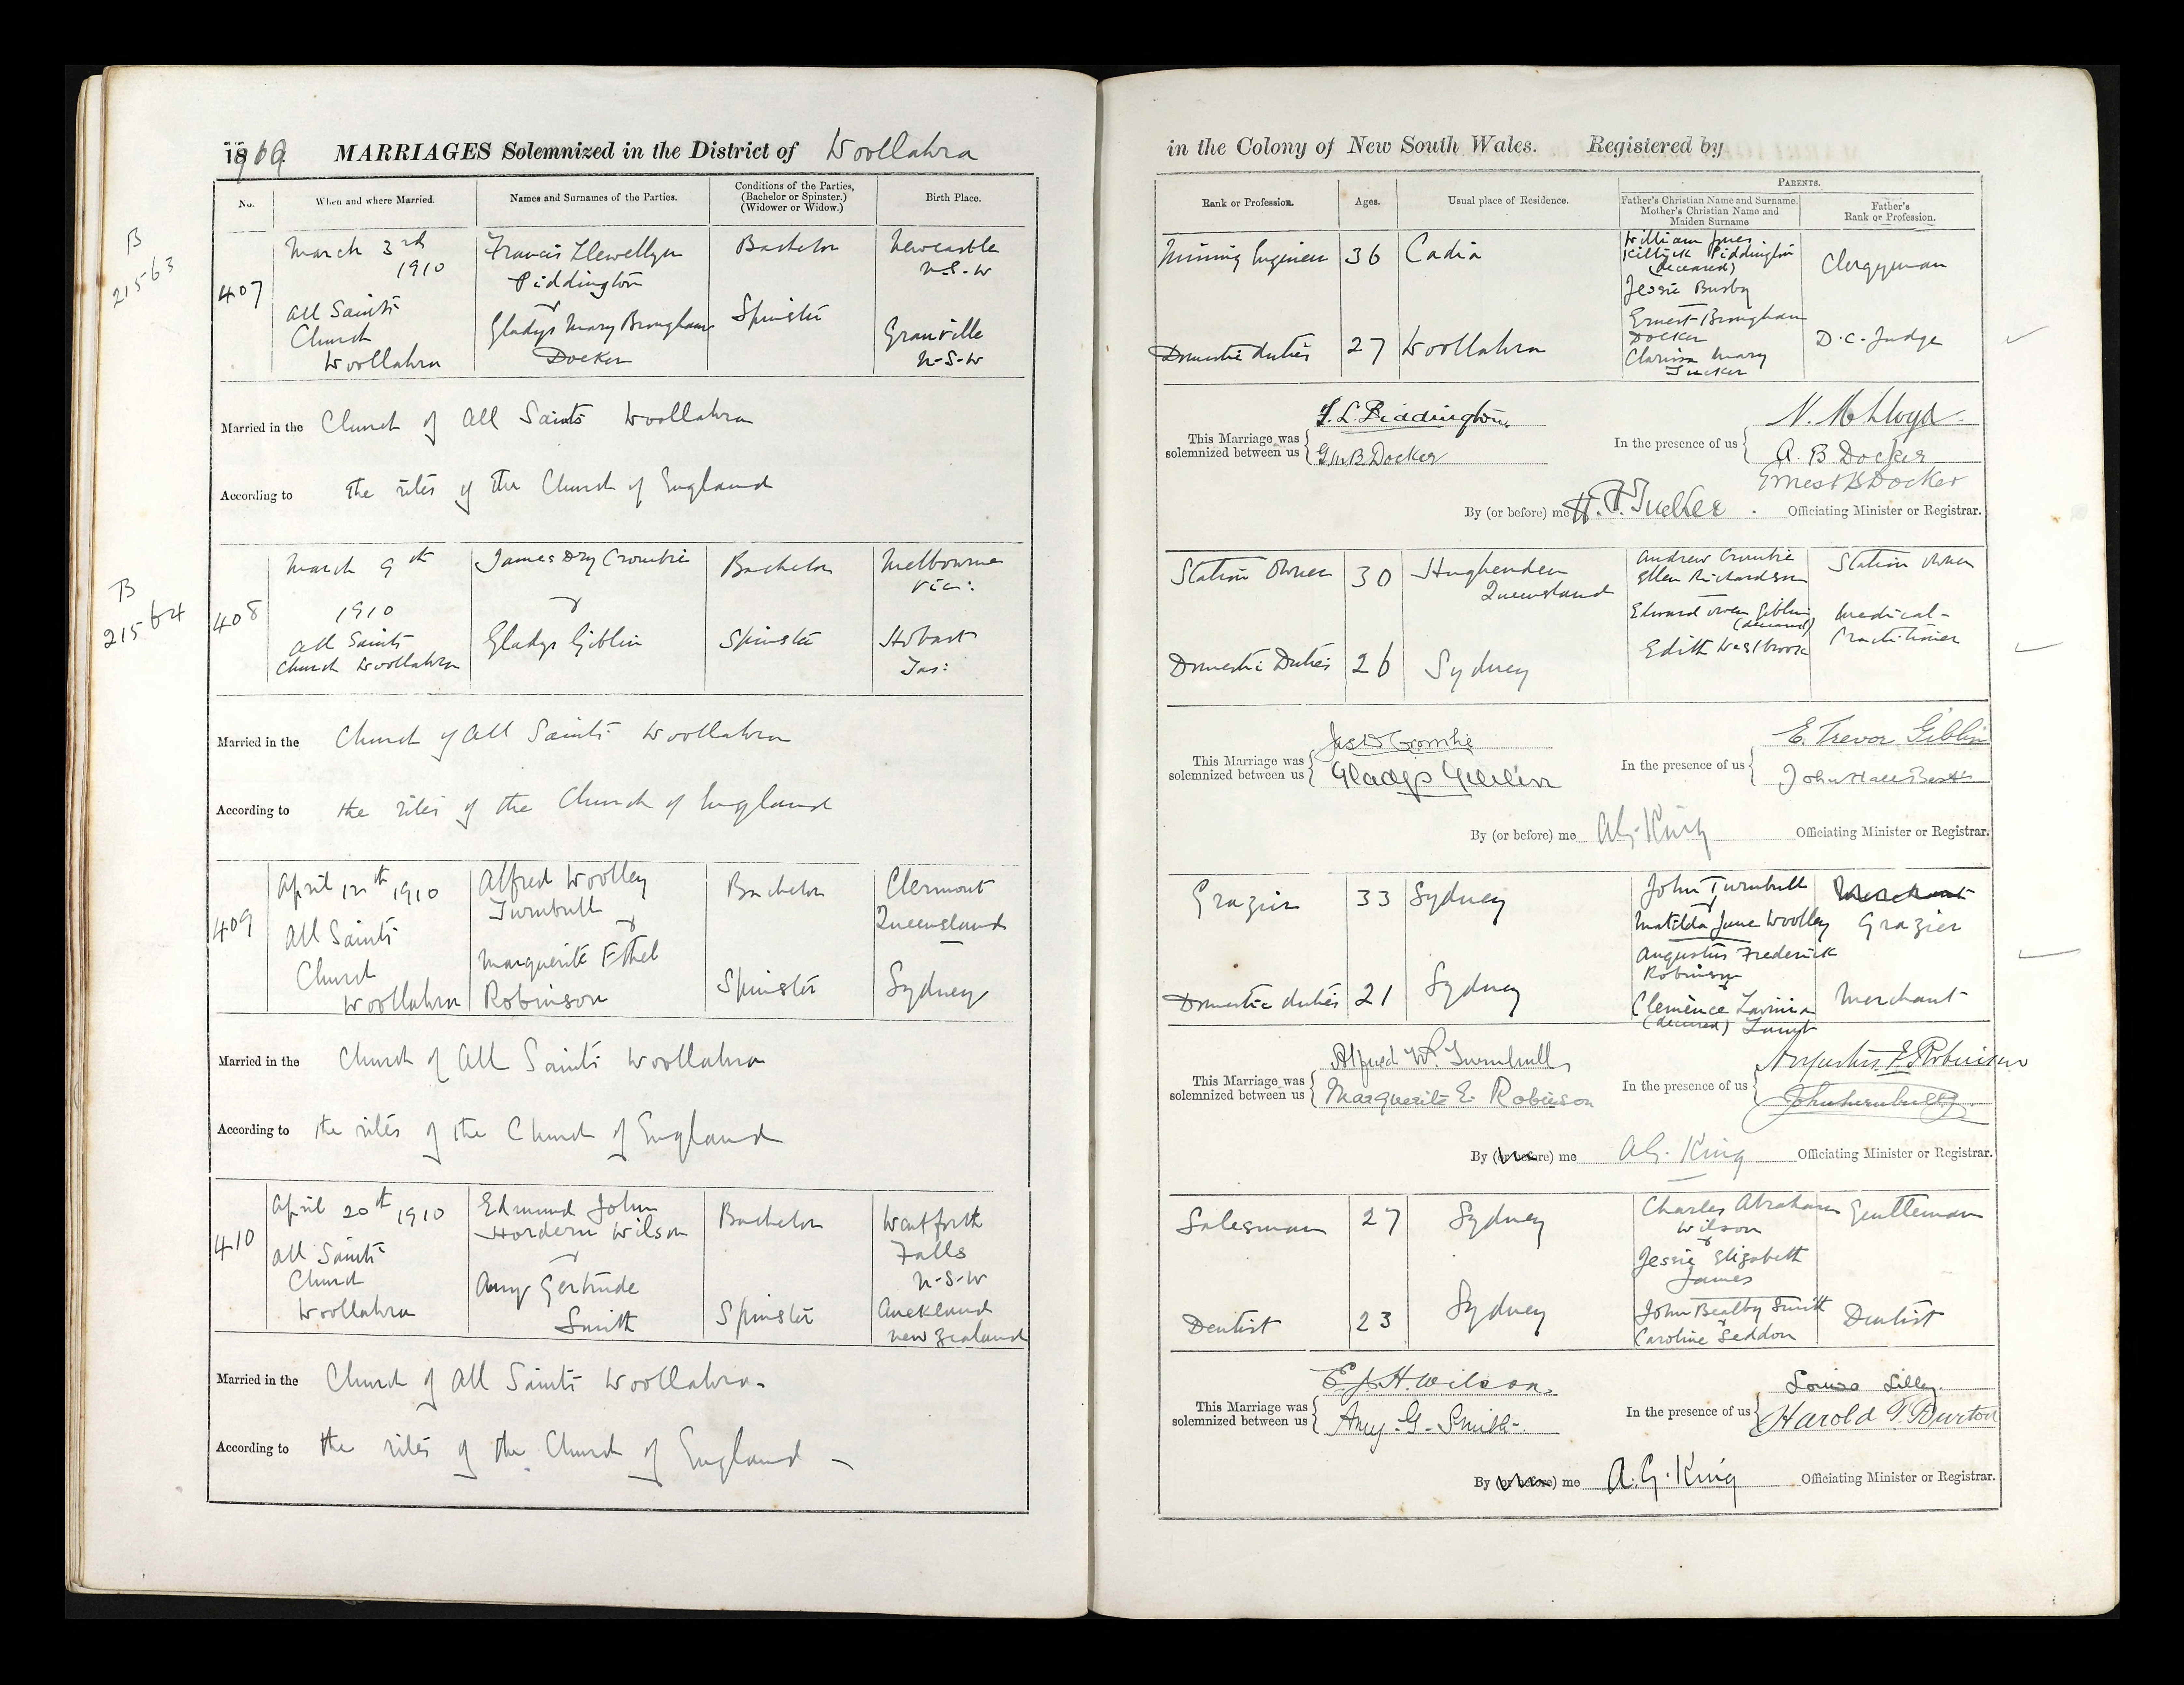 1909. MARRIAGES Solemnized in the District of Woollahra
No.
When and where Married.
Names and Surnames of the Parties.
Conditions of the Parties,
(Bachelor or Spinster.)
(Widower or Widow.)
Birth Place.
B
21563
407
March 3rd
1910
All Saints
Church
Woollahra
Francis Llewellyn
Piddington
&
Gladys Mary Brougham
Docker
Bachelor
Spinster
Newcastle
N-S-W
Granville
N-S-W
Married in the Church of All Saints Woollahra
According to the rites of the Church of England
B
21564
408
March 9th
1910
All Saints
Church Woollahra
James Dry Crombie
&
Gladys Giblin
Bachelor
Spinster
Melbourne
Vic:
Hobart
Tas:
Married in the Church of All Saints Woollahra
According to the rites of the Church of England
409
April 12th 1910
All Saints
Church
Woollahra
Alfred Woolley
Turnbull
&
Marguerite Ethel
Robinson
Bachelor
Spinster
Clermont
Queensland
Sydney
Married in the Church of All Saints Woollahra
According to the rites of the Church of England
410
April 20th 1910
All Saints
Church
Woollahra
Edmund John
Hordern Wilson
&
Amy Gertrude
Smith
Bachelor
Spinster
Wentforth
Falls
N-S-W
Auckland
New Zealand
Married in the Church of All Saints Woollahra.
According to the rites of the Church of England
in the Colony of New South Wales. Registered by
Rank or Profession.
Ages.
Usual place of Residence.
PARENTS.
Father's Christian Name and Surname.
Mother's Christian Name and
Maiden Surname
Father's
Rank or Profession.
Mining Engineer
36
Cadia
William Jones
Killick Piddington
(deceased)
Jessie Busby
Clergyman
Domestic duties
27
Woollahra
Ernest Brougham
Docker
Clarissa Mary
Tucker
D.C. Judge
This Marriage was
solemnized between us
F. L. Piddington.
G M B Docker
In the presence of us
A. B Docker
Ernest B Docker
By (or before) me H. Tucker. Officiating Minister or Registrar.
Station Owner
30
Hughenden
Queensland
Andrew Crombie
Ellen Richardson
Station Owner
Domestic Duties
26
Sydney
Edward Owen Giblin
(deceased)
Edith Westbrook
Medical-
Practitioner
This Marriage was
solemnized between us
Jas D Crombie
Gladys Giblin
In the presence of us
E. Trevor Giblin
John Hall Best
By (or before) me A G. King Officiating Minister or Registrar.
Grazier
33
Sydney
John Turnbull
&
Matilda Jane Woolley
Merchant
Grazier
Domestic duties
21
Sydney
Augustus Frederick
Robinson
&
Clemence Lavinia
(deceased)
Merchant
This Marriage was
solemnized between us
Alfred W. Turnbull
Marguerite E. Robinson
In the presence of us
Augustus F. Robinson
John Turnbull
By (or before) me A G. King Officiating Minister or Registrar.
Salesman
27
Sydney
Charles Abraham
Wilson
&
Jessie Elizabeth
James
Gentleman
Dentist
23
Sydney
John Bealby Smith
&
Caroline Seddon
Dentist
This Marriage was
solemnized between us
E. J. H. Wilson.
Amy. G. Smith.
In the presence of us
Louisa Lilley
Harold T. Burton
By (or before) me A. G. King Officiating Minister or Registrar.